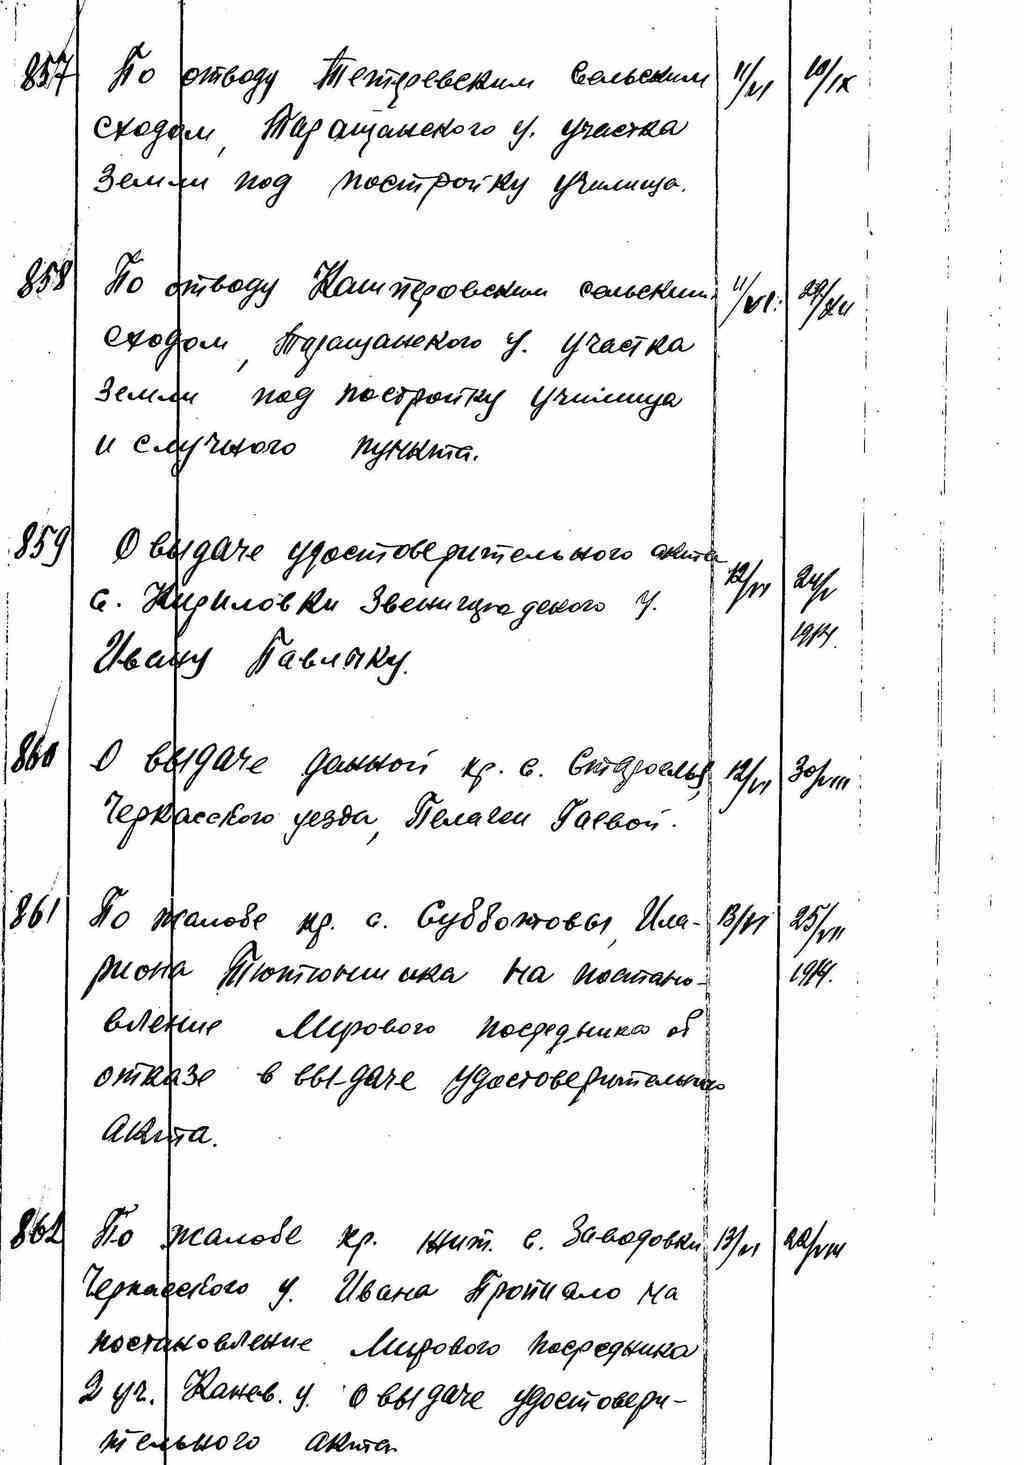 857 По отводу Тетиревским сельским 11/VI 10/IX
сходом, Таращанского у. участка
земли под постройку училища.
858 По отводу Кашперовским сельским 11/VI. 29/XII
сходом, Таращанского у. участка
земли под постройку училища
и случного пункта.
859 О выдаче удостоверительного акта
с. Кириловки Звенигородского у. 12/VI 24/V
Ивану Павлюку. 1914.
860 О выдаче данной кр. с. Староселья, 12/VI 30/VIII
Черкасского уезда, Пелагеи Гаевой.
861 По жалобе кр. с. Субботовы, Ила- 13/VI 25/VII
риона Тютюнника на постано- 1914.
вление Мирового посредника об
отказе в выдаче удостоверительного
акта.
862 По жалобе кр. жит. с. Заводовки 13/VI 22/VIII
Черкасского у. Ивана на
постановление Мирового посредника
2 уч. Канев. у. о выдаче удостовери-
тельного акта